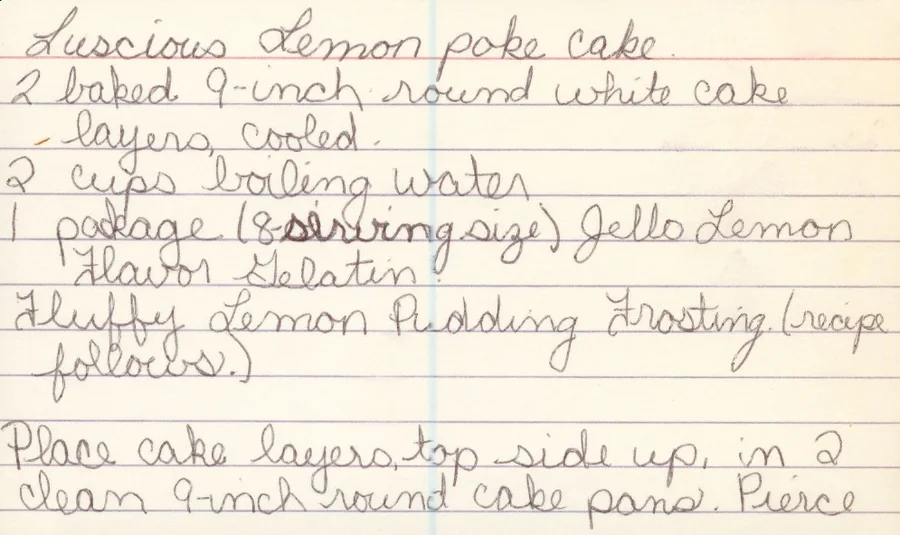 Luscious Lemon poke cake.
2 baked 9-inch round white cake
layers, cooled.
2 cups boiling water
1 package (8-serving size) Jello Lemon
Flavor Gelatin.
Fluffy Lemon Pudding Frosting. (recipe
follows.)
Place cake layers, top side up, in 2
clean 9-inch round cake pans. Pierce